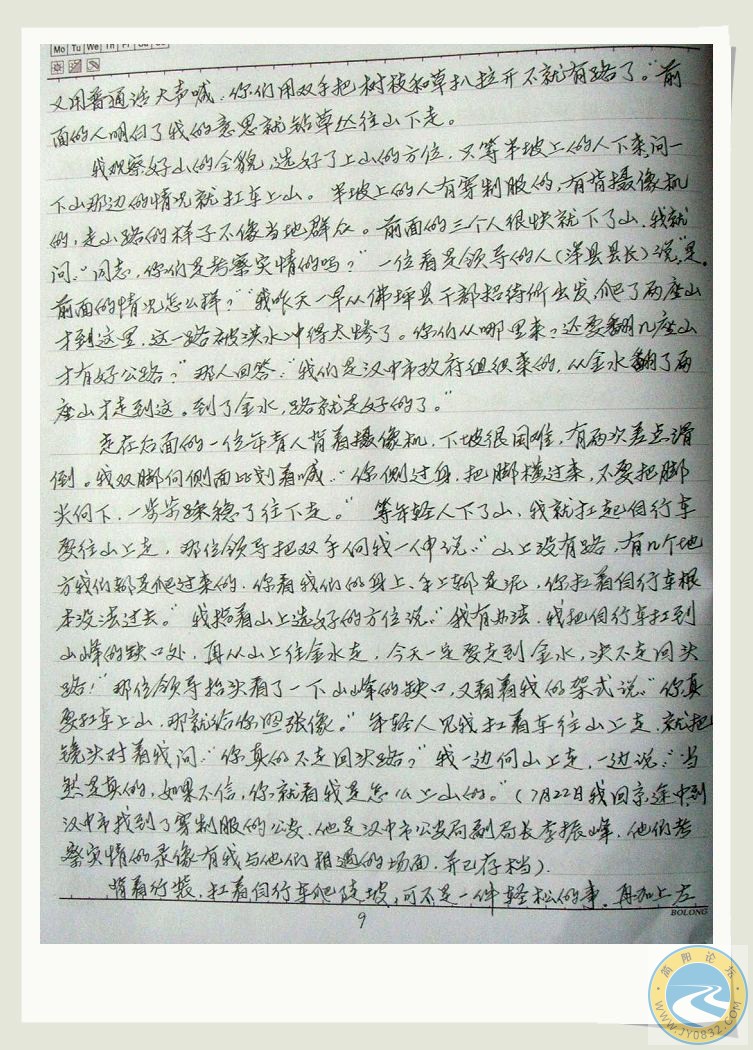 Mo Tu We Th Fr Sa Su
又用普通话大声喊：“你们用双手把树枝和草扒拉开不就有路了。”前
面的人明白了我的意思就钻草丛往山下走。
我观察好山的全貌，选好了上山的方位，只等半坡上的人下来问一
下山那边的情况就扛车上山。半坡上的人有穿制服的，有背摄像机
的，走山路的样子不像当地群众。前面的三个人很快就下了山，我就
问：“同志，你们是考察灾情的吗？”一位看是领导的人（洋县县长）说“是。
前面的情况怎么样？”“我昨天一早从佛坪县干部招待所出发，爬了两座山
才到这里，这一路被洪水冲得太惨了。你们从哪里来？还要翻几座山
才有好公路？”那人回答：“我们是汉中市政府组织来的，从金水翻了两
座山才走到这。到了金水，路就是好的了。”
走在后面的一位年青人背着摄像机，下坡很困难，有两次差点滑
倒。我双脚向侧面比划着喊：“你侧过身，把脚横过来，不要把脚
尖向下，一步步踩稳了往下走。”等年轻人下了山，我就扛起自行车
要往山上走，那位领导把双手向我一伸说：“山上没有路，有几个地
方我们都是爬过来的，你看我们的身上、手上都是泥，你扛着自行车根
本没法过去。”我指着山上选好的方位说：“我有办法，我把自行车扛到
山峰的缺口处，再从山上往金水走，今天一定要走到金水，决不走回头
路！”那位领导抬头看了一下山峰的缺口，又看着我的架式说：“你真
要扛车上山，那就给你照张像。”年轻人见我扛着车往山上走，就把
镜头对着我问：“你真的不走回头路？”我一边向山上走，一边说：“当
然是真的，如果不信，你就看我是怎么上山的。”（7月22日我回京途中到
汉中市找到了穿制服的公安，他是汉中市公安局副局长李振峰，他们考
察灾情的录像有我与他们相遇的场面，并已存档）。
背着行装，扛着自行车爬陡坡，可不是一件轻松的事，再加上左
BOLONG
9
简阳论坛
WWW.JY0832.COM